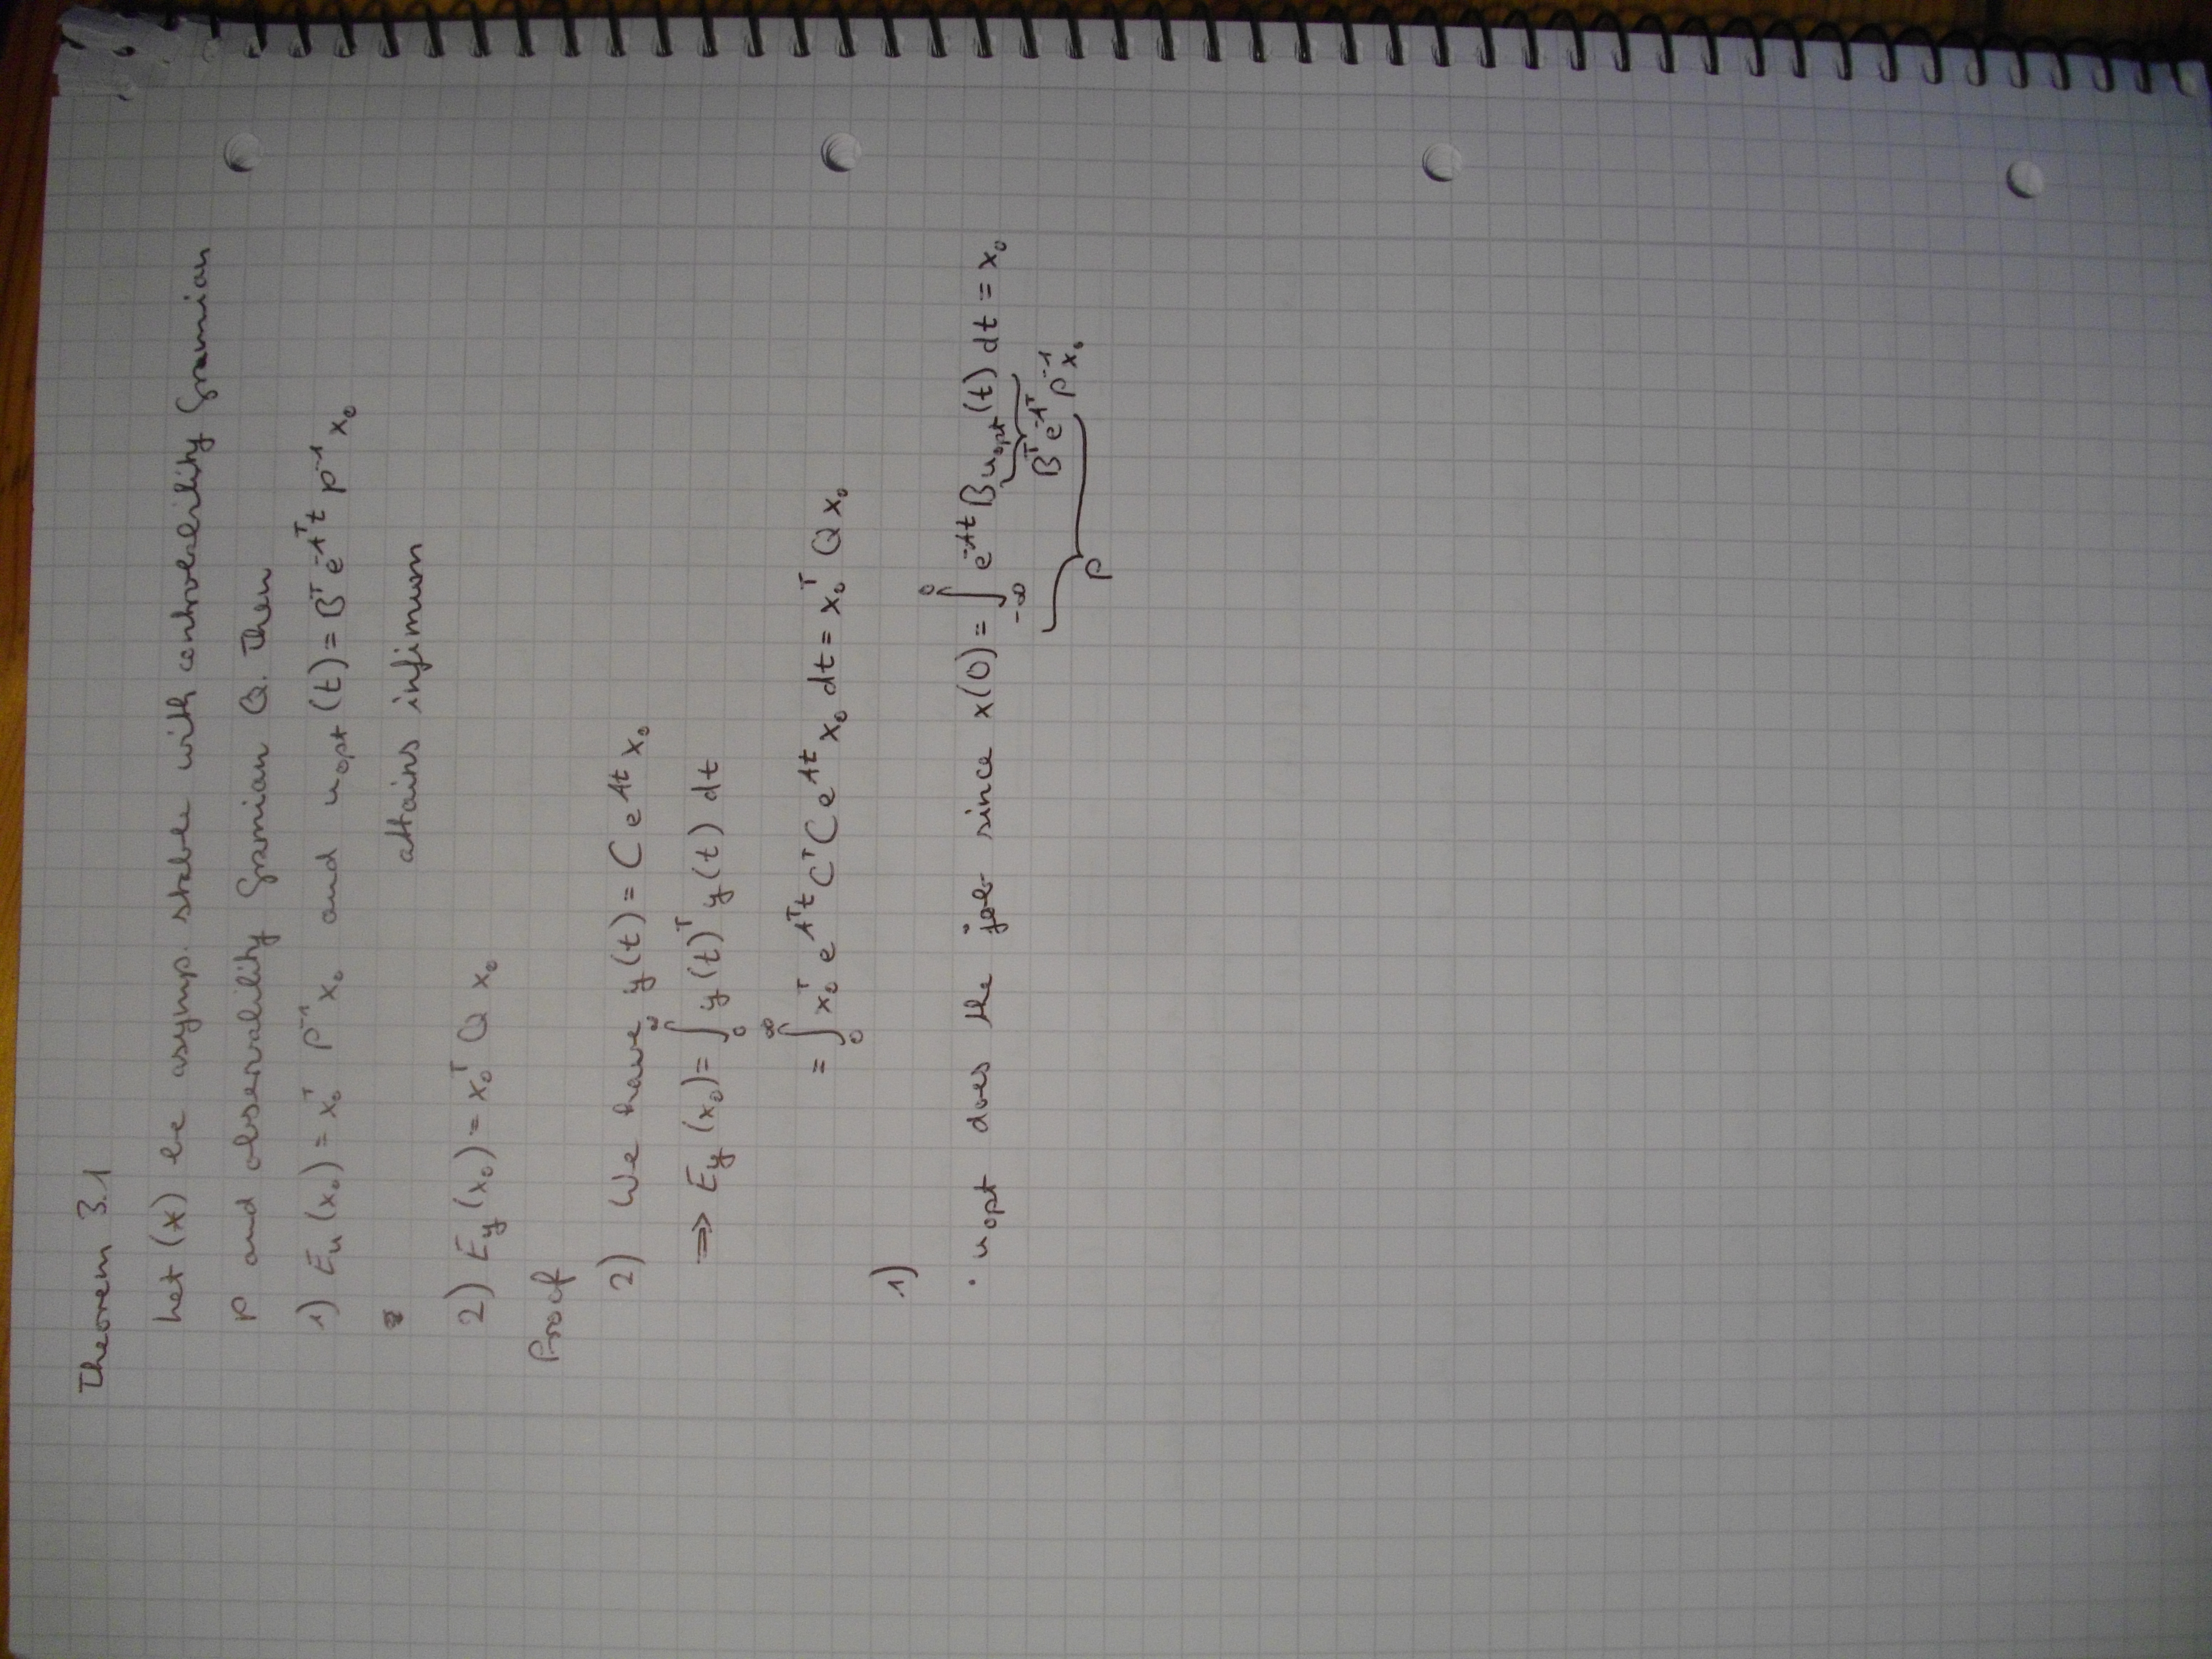 Theorem 3.1
Let (*) be asymp. stable with controllability Gramian
P and observability Gramian Q. Then
1) E_u(x_0) = x_0^T P^{-1} x_0 and u_opt(t) = B^T e^{-A^T t} P^{-1} x_0
attains infimum
2) E_y(x_0) = x_0^T Q x_0
Proof
2) We have y(t) = C e^{At} x_0
⇒ E_y(x_0) = ∫_0^∞ y(t)^T y(t) dt
= ∫_0^∞ x_0^T e^{A^T t} C^T C e^{At} x_0 dt = x_0^T Q x_0
1)
· u_opt does the job since x(0) = ∫_{-∞}^0 e^{-At} B u_opt(t) dt = x_0
B^T e^{-A^T} P^{-1} x_0
P